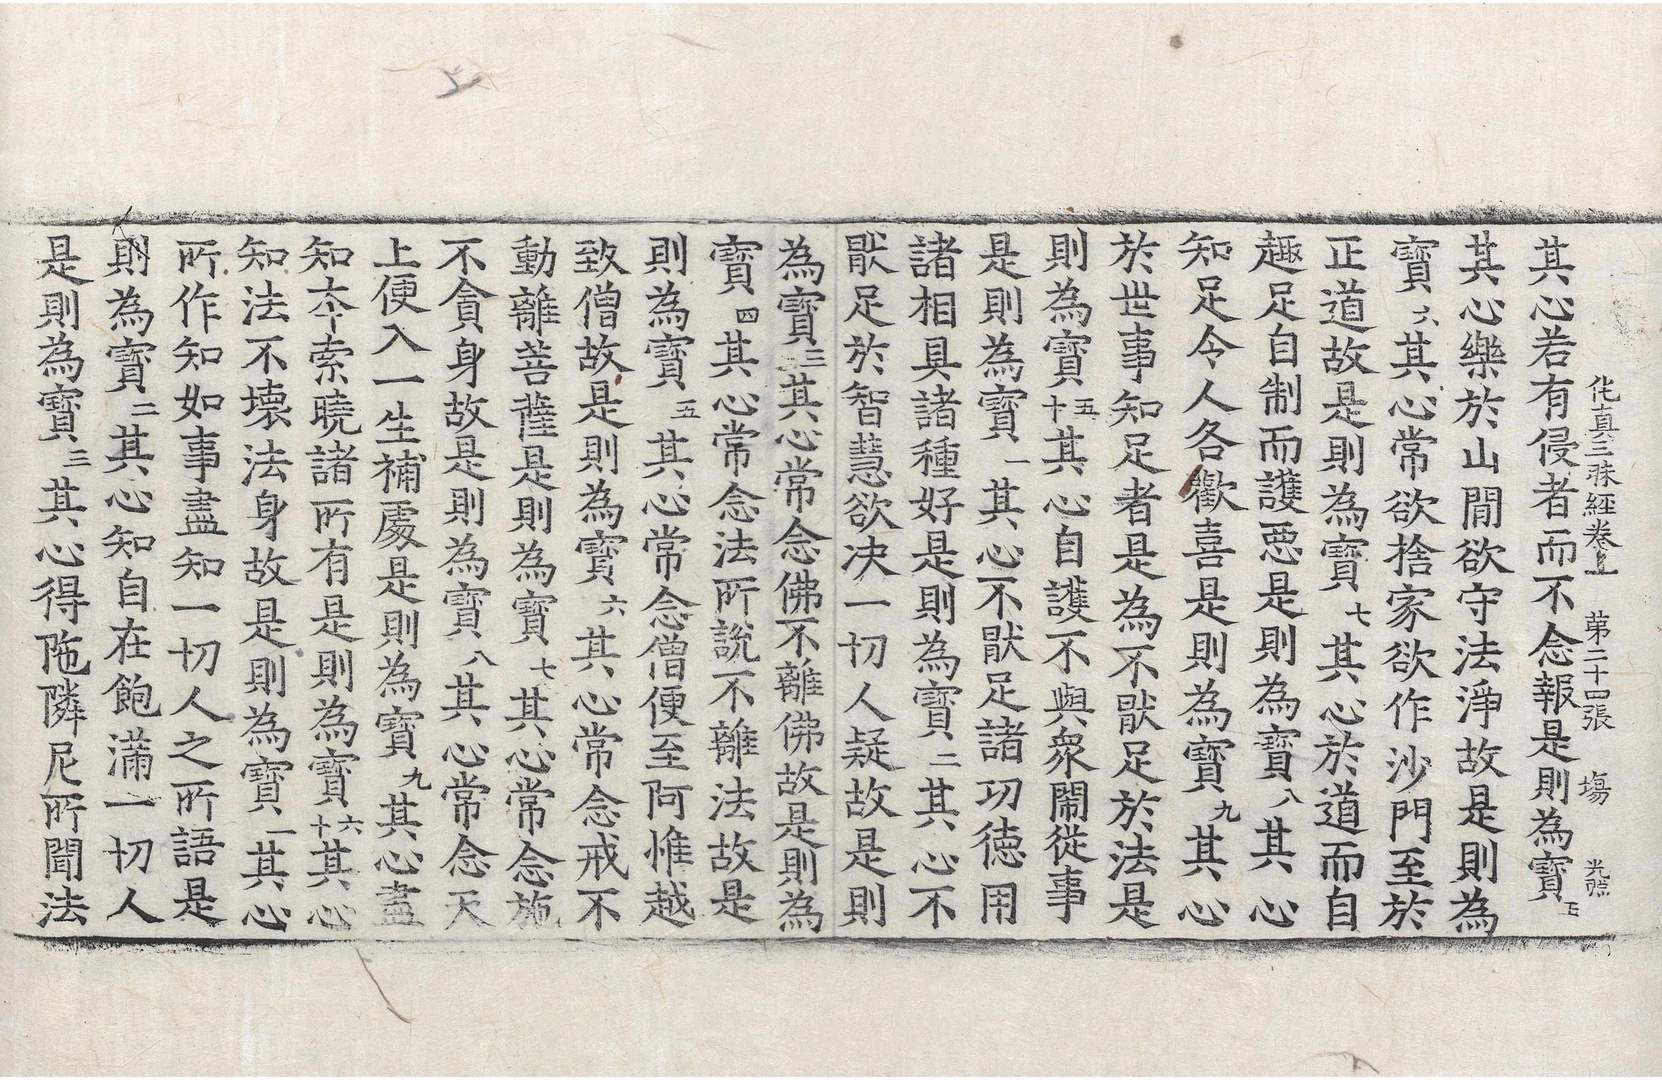 伅真三昧經卷上　第二十四張　塲
其心若有侵者而不念報是則為寶五
其心樂於山閒欲守法淨故是則為
寶六其心常欲捨家欲作沙門至於
正道故是則為寶七其心於道而自
趣足自制而護惡是則為寶八其心
知足令人各歡喜是則為寶九其心
於世事知足者是為不猒足於法是
則為寶十五其心自護不與衆閙從事
是則為寶一其心不猒足諸功德用
諸相具諸種好是則為寶二其心不
猒足於智慧欲决一切人疑故是則
為寶三其心常念佛不離佛故是則為
寶四其心常念法所說不離法故是
則為寶五其心常念僧便至阿惟越
致僧故是則為寶六其心常念戒不
動離菩薩是則為寶七其心常念施
不貪身故是則為寶八其心常念天
上便入一生補處是則為寶九其心盡
知夲索曉諸所有是則為寶十六其心
知法不壊法身故是則為寶一其心
所作知如事盡知一切人之所語是
則為寶二其心知自在飽滿一切人
是則為寶三其心得陁隣尼所聞法